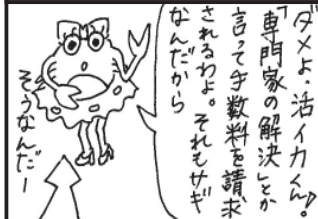 ダメよ、活イカくん！。
「専門家の解決」とか
言って手数料を請求
されるわよ。それもサギ
なんだから
そうなんだー